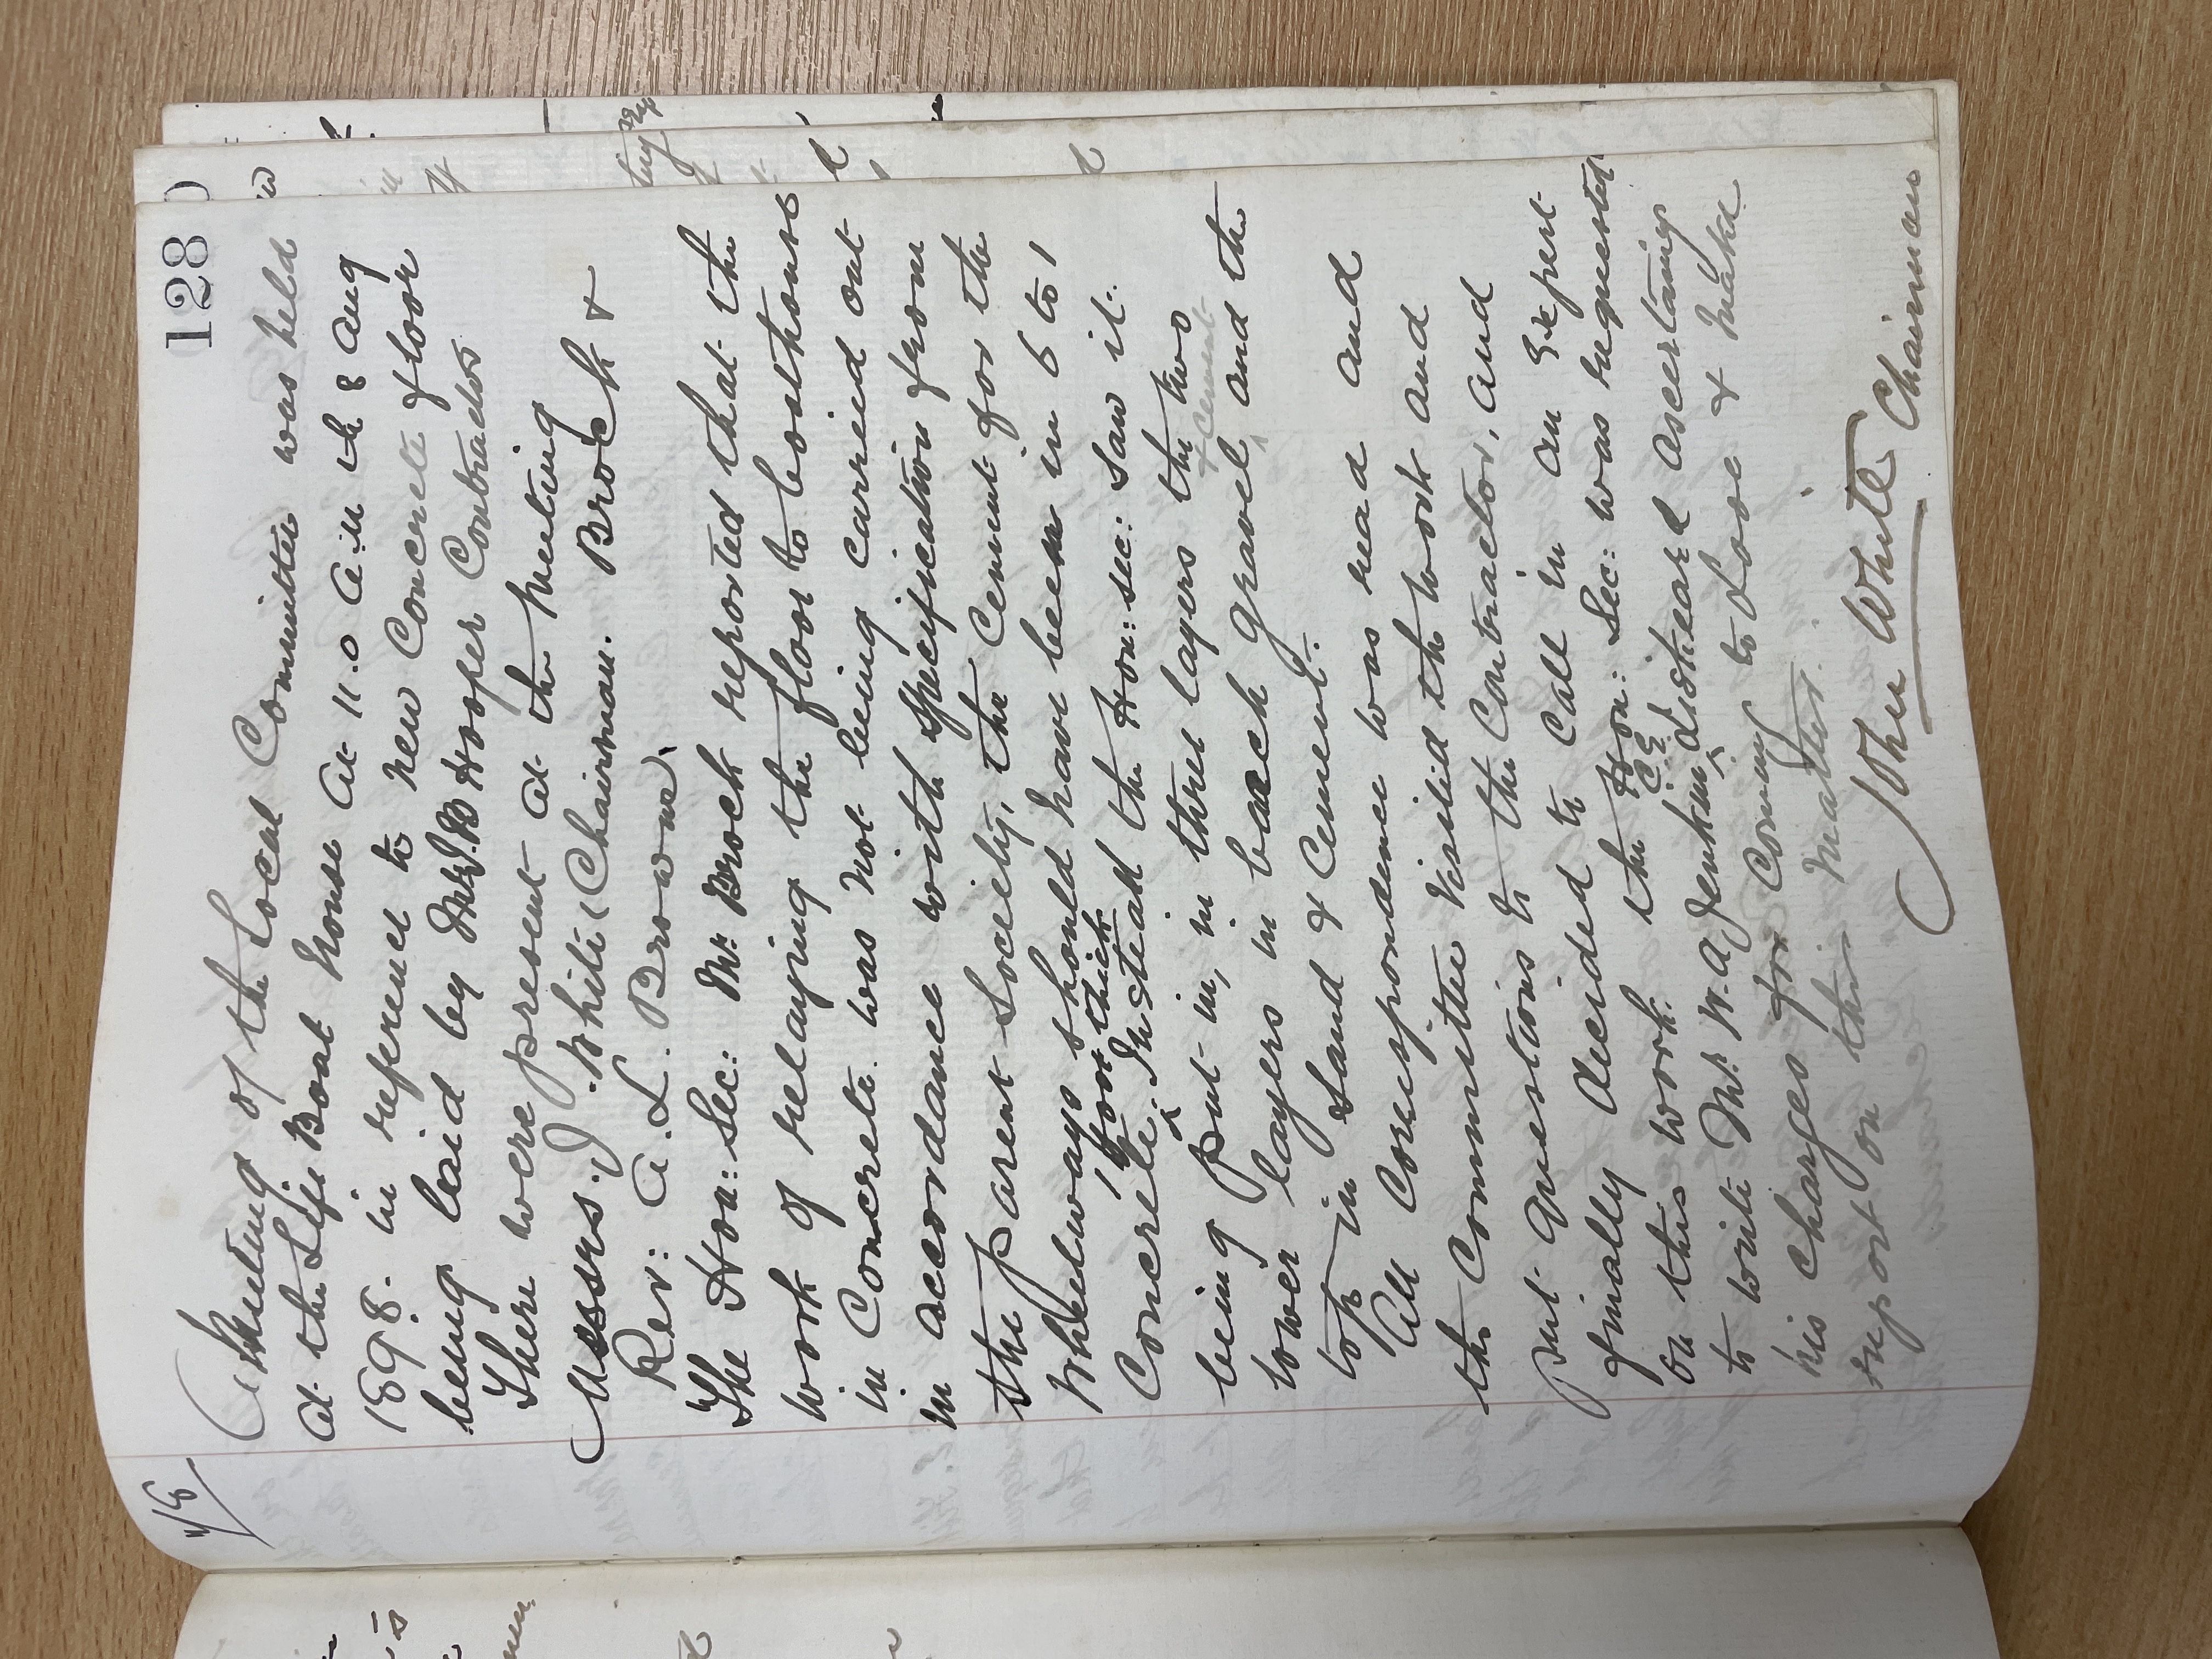 128
A Meeting of the Local Committee was held
at the Life Boat house at 11.0 a.m th 8 Aug
1898. in reference to new Concrete floor
being laid by Mr J.B Hooper Contractor
There were present at the meeting
Messrs. J. White (Chairman. Brock &
Rev: A. L. Brown)
The Hon: Sec: Mr. Brock reported that the
work of relaying the floor to boathouse
in Concrete was not being carried out
in accordance with specification from
the parent Society, the Cement for the
Wheelways should have been in 6 to 1
1 foot thick
Concrete. Instead the Hon: Sec: saw it
being put in, in three layers the two
& Cement
lower layers in beach gravel and the
top in Sand & Cement.
All Correspondence was read and
the Committee visited the work and
put questions to the Contractor, and
finally decided to call in an Expert
on this work. the Hon: Sec: was requested
C.E.
to write Mr. W. A. Jenkins Liskeard ascertaing
his charges for Coming to Looe & make
report on this matter.
John White Chairman